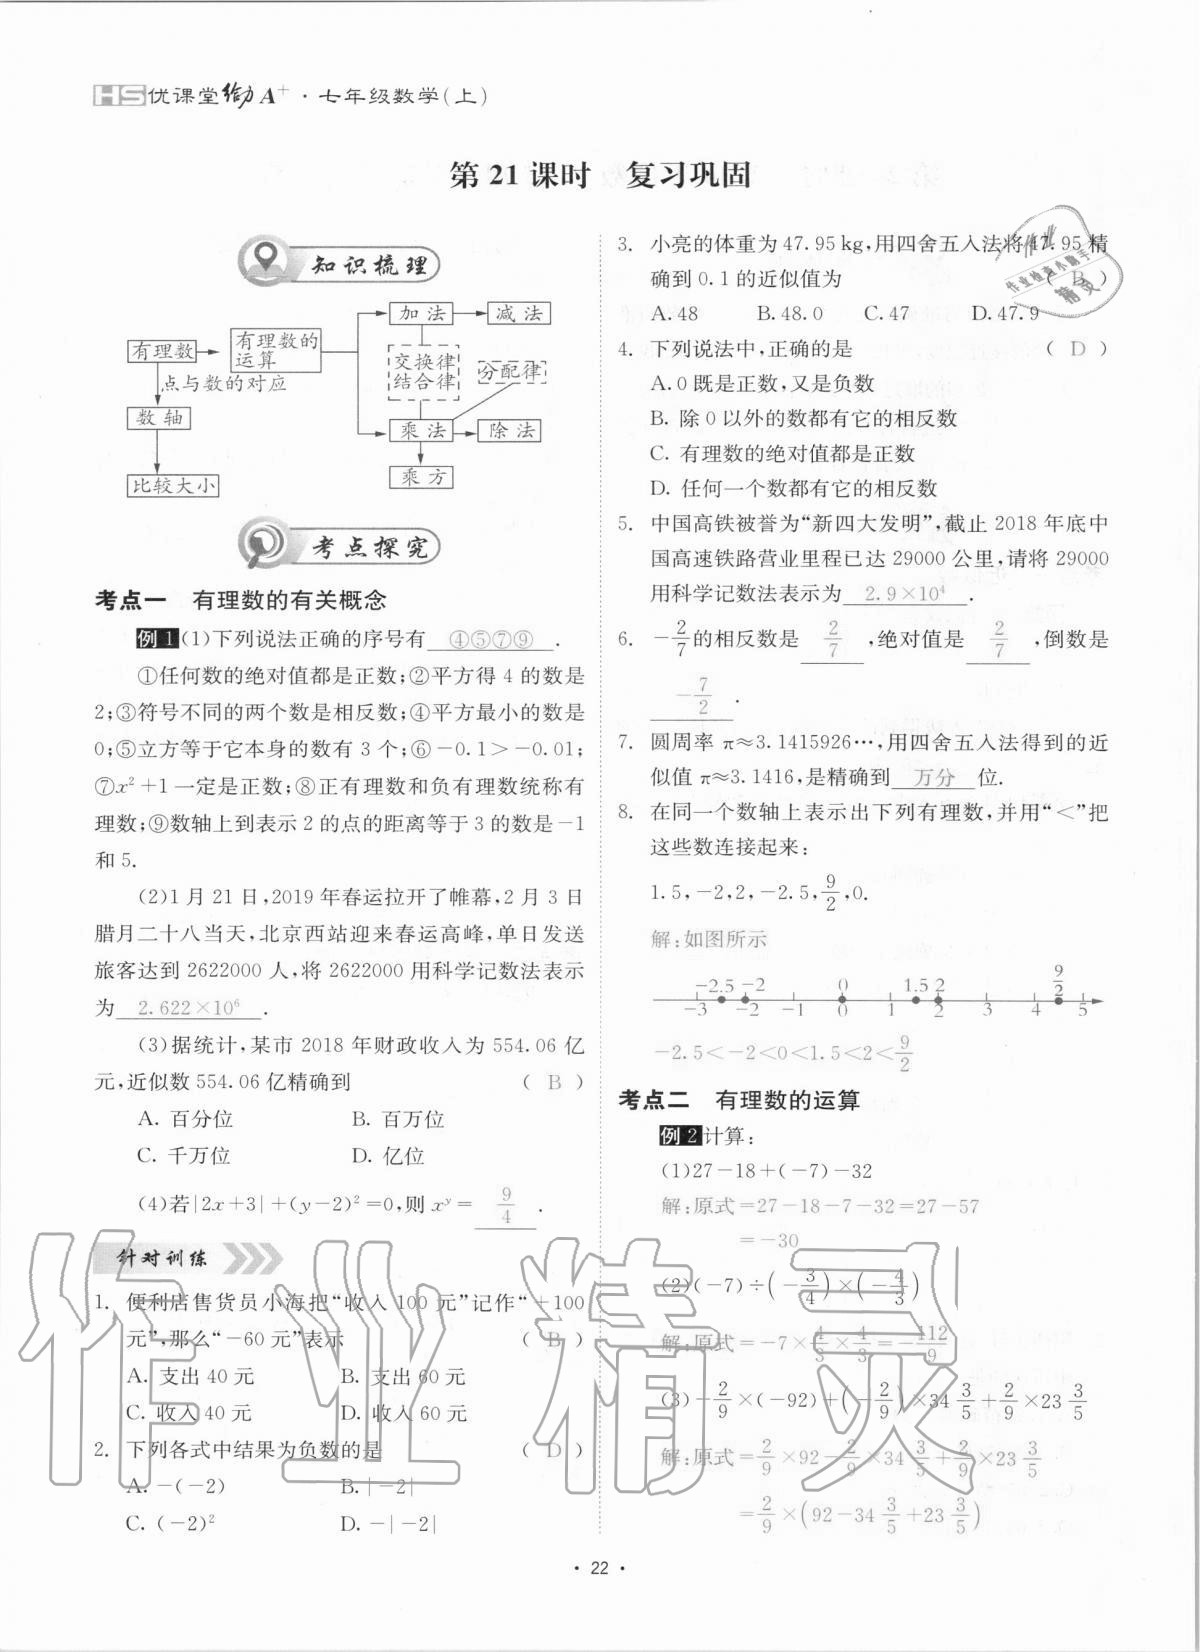 HS优课堂给力A⁺·七年级数学(上)
第21课时 复习巩固
知识梳理
加法 减法
有理数 有理数的运算 交换律 结合律 分配律
点与数的对应
数轴 乘法 除法
比较大小 乘方
考点探究
考点一 有理数的有关概念
例1(1)下列说法正确的序号有 ④⑤⑦⑨ .
①任何数的绝对值都是正数;②平方得4的数是
2;③符号不同的两个数是相反数;④平方最小的数是
0;⑤立方等于它本身的数有3个;⑥-0.1>-0.01;
⑦x²+1一定是正数;⑧正有理数和负有理数统称有
理数;⑨数轴上到表示2的点的距离等于3的数是-1
和5.
(2)1月21日,2019年春运拉开了帷幕,2月3日
腊月二十八当天,北京西站迎来春运高峰,单日发送
旅客达到2622000人,将2622000用科学记数法表示
为 2.622×10⁶ .
(3)据统计,某市2018年财政收入为554.06亿
元,近似数554.06亿精确到 ( B )
A. 百分位 B. 百万位
C. 千万位 D. 亿位
(4)若|2x+3|+(y-2)²=0,则xʸ= 9/4 .
针对训练
1. 便利店售货员小海把“收入100元”记作“+100
元”,那么“-60元”表示 ( B )
A. 支出40元 B. 支出60元
C. 收入40元 D. 收入60元
2. 下列各式中结果为负数的是 ( D )
A. -(-2) B. |-2|
C. (-2)² D. -|-2|
3. 小亮的体重为47.95 kg,用四舍五入法将47.95精
确到0.1的近似值为 ( B )
A. 48 B. 48.0 C. 47 D. 47.9
4. 下列说法中,正确的是 ( D )
A. 0既是正数,又是负数
B. 除0以外的数都有它的相反数
C. 有理数的绝对值都是正数
D. 任何一个数都有它的相反数
5. 中国高铁被誉为“新四大发明”,截止2018年底中
国高速铁路营业里程已达29000公里,请将29000
用科学记数法表示为 2.9×10⁴ .
6. -2/7的相反数是 2/7 ,绝对值是 2/7 ,倒数是
-7/2 .
7. 圆周率π≈3.1415926…,用四舍五入法得到的近
似值π≈3.1416,是精确到 万分 位.
8. 在同一个数轴上表示出下列有理数,并用“<”把
这些数连接起来:
1.5,-2,2,-2.5,9/2,0.
解:如图所示
-2.5 -2 0 1.5 2 9/2
-3 -2 -1 0 1 2 3 4 5
-2.5<-2<0<1.5<2<9/2
考点二 有理数的运算
例2计算:
(1)27-18+(-7)-32
解:原式=27-18-7-32=27-57
=-30
(2)(-7)÷(-3/4)×(-4/3)
解:原式=-7×4/3×4/3=-112/9
(3)-2/9×(-92)+(-2/9)×34 3/5+2/9×23 3/5
解:原式=2/9×92-2/9×34 3/5+2/9×23 3/5
=2/9×(92-34 3/5+23 3/5)
·22·
作业精灵